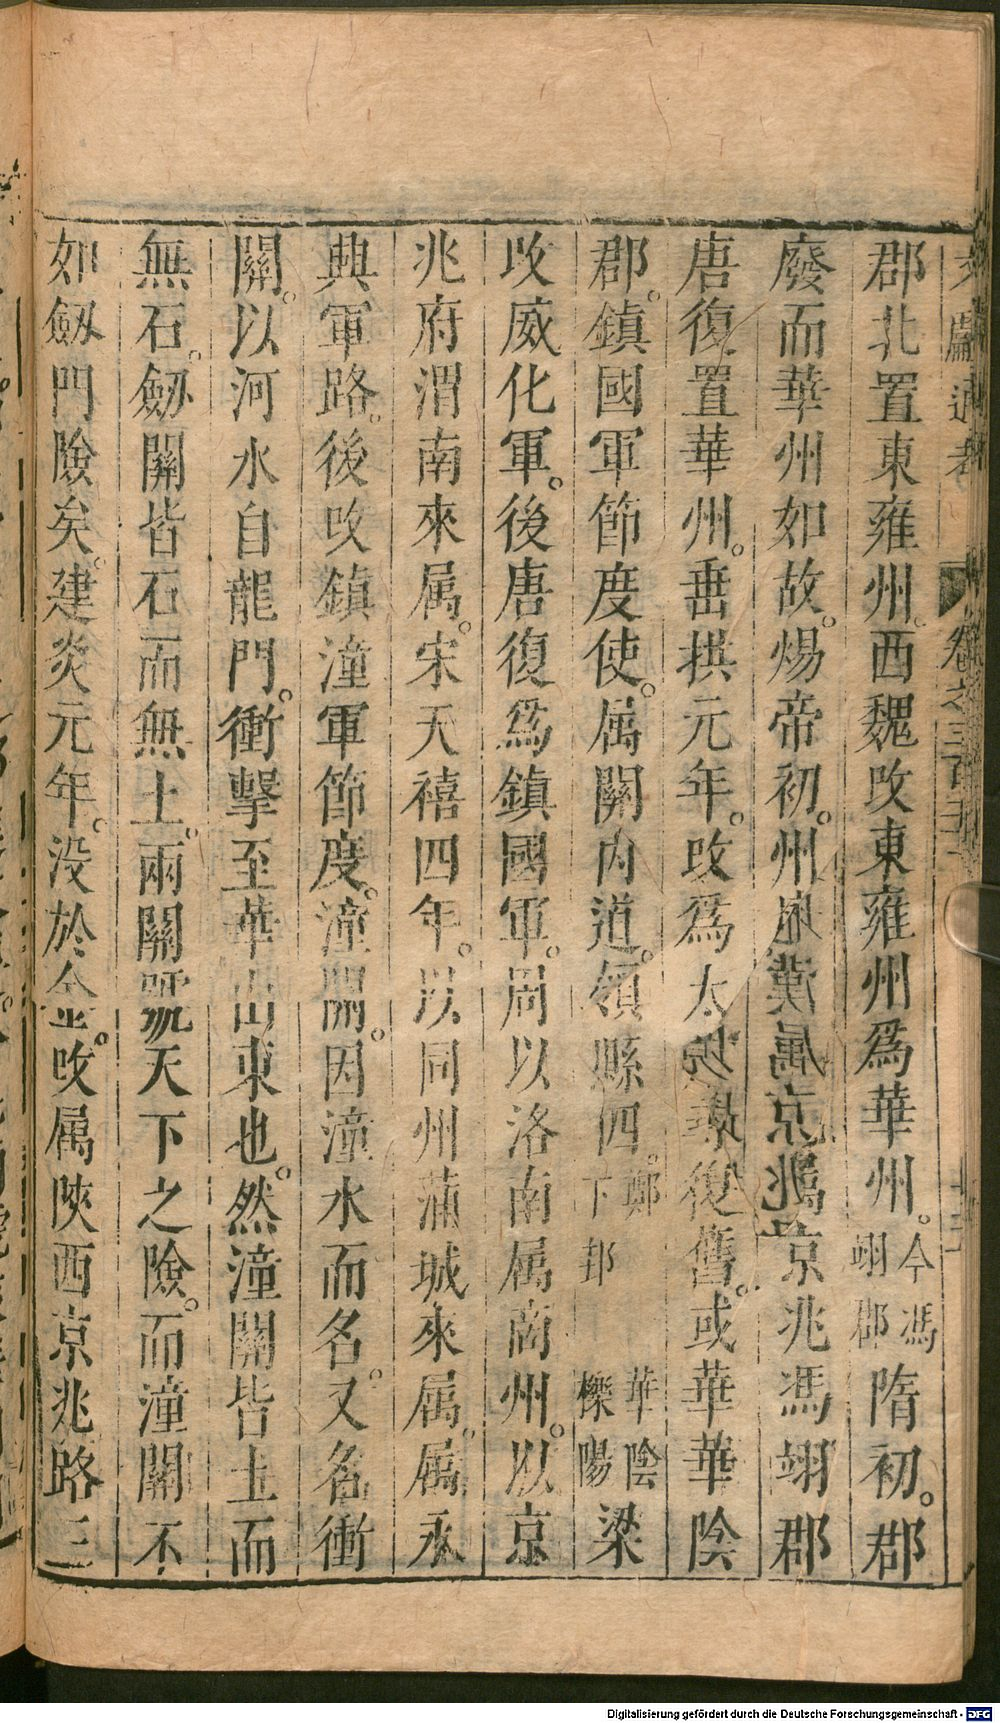 文獻通考
卷之三百五十
郡北置東雍州。西魏改東雍州爲華州。今馮翊郡隋初。郡
廢而華州如故。煬帝初。州廢屬京兆馮翊郡
唐復置華州。垂拱元年。改爲太州尋復舊。或華華陰
郡。鎮國軍節度使。属關内道。領縣四。鄭下邽華陰櫟陽梁
改威化軍。後唐復爲鎮國軍。周以洛南属商州。以京
兆府渭南來属。宋天禧四年。以同州蒲城來属。属永
興軍路。後改鎮潼軍節度。潼關。因潼水而名。又名衝
關。以河水自龍門。衝擊至華山東也。然潼關皆土而
無石。劔關皆石而無土。兩關號天下之險。而潼關不
如劔門險矣。建炎元年。没於金。改属陝西京兆路三
Digitalisierung gefördert durch die Deutsche Forschungsgemeinschaft - DFG